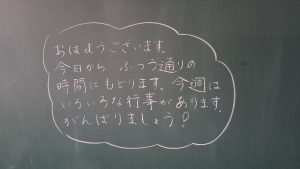 おはようございます。
今日から ふつう通りの
時間にもどります。今週は
いろいろな行事があります。
がんばりましょう!